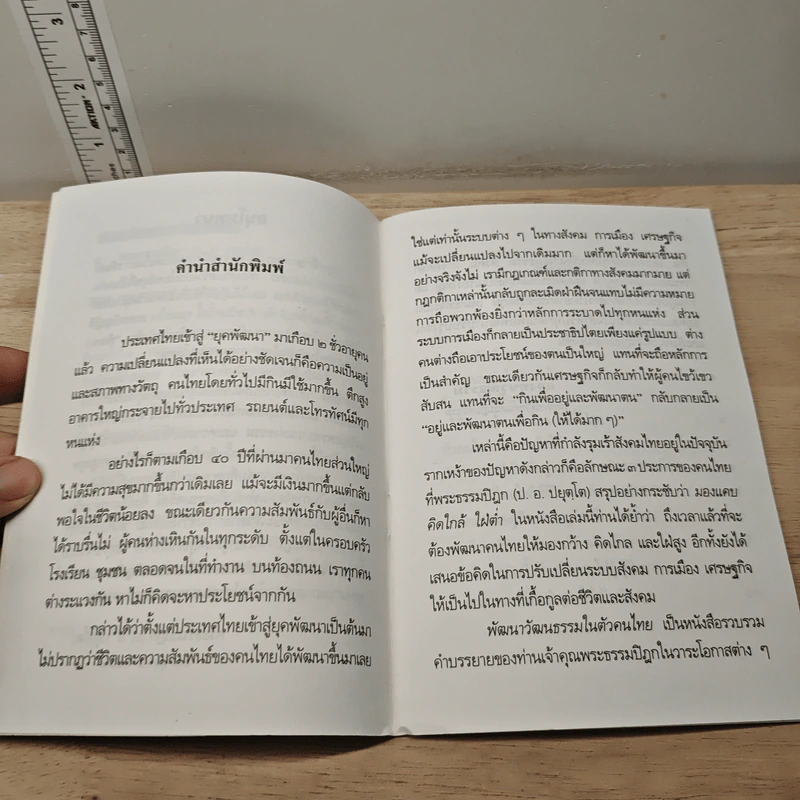 คำนำสำนักพิมพ์
ประเทศไทยเข้าสู่ “ยุคพัฒนา” มาเกือบ ๒ ชั่วอายุคน
แล้ว ความเปลี่ยนแปลงที่เห็นได้อย่างชัดเจนก็คือความเป็นอยู่
และสภาพทางวัตถุ คนไทยโดยทั่วไปมีกินมีใช้มากขึ้น ตึกสูง
อาคารใหญ่กระจายไปทั่วประเทศ รถยนต์และโทรทัศน์มีทุก
หนแห่ง
อย่างไรก็ตามเกือบ ๔๐ ปีที่ผ่านมาคนไทยส่วนใหญ่
ไม่ได้มีความสุขมากขึ้นกว่าเดิมเลย แม้จะมีเงินมากขึ้นแต่กลับ
พอใจในชีวิตน้อยลง ขณะเดียวกันความสัมพันธ์กับผู้อื่นก็หา
ได้ราบรื่นไม่ ผู้คนห่างเหินกันในทุกระดับ ตั้งแต่ในครอบครัว
โรงเรียน ชุมชน ตลอดจนในที่ทำงาน บนท้องถนน เราทุกคน
ต่างระแวงกัน หาไม่ก็คิดจะหาประโยชน์จากกัน
กล่าวได้ว่าตั้งแต่ประเทศไทยเข้าสู่ยุคพัฒนาเป็นต้นมา
ไม่ปรากฏว่าชีวิตและความสัมพันธ์ของคนไทยได้พัฒนาขึ้นมาเลย
ใช่แต่เท่านั้นระบบต่าง ๆ ในทางสังคม การเมือง เศรษฐกิจ
แม้จะเปลี่ยนแปลงไปจากเดิมมาก แต่ก็หาได้พัฒนาขึ้นมา
อย่างจริงจังไม่ เรามีกฎเกณฑ์และกติกาทางสังคมมากมาย แต่
กฎกติกาเหล่านั้นกลับถูกละเมิดฝ่าฝืนจนแทบไม่มีความหมาย
การถือพวกพ้องยิ่งกว่าหลักการระบาดไปทุกหนแห่ง ส่วน
ระบบการเมืองก็กลายเป็นประชาธิปไตยเพียงแค่รูปแบบ ต่าง
คนต่างถือเอาประโยชน์ของตนเป็นใหญ่ แทนที่จะถือหลักการ
เป็นสำคัญ ขณะเดียวกันเศรษฐกิจก็กลับทำให้ผู้คนไขว้เขว
สับสน แทนที่จะ “กินเพื่ออยู่และพัฒนาตน” กลับกลายเป็น
“อยู่และพัฒนาตนเพื่อกิน (ให้ได้มาก ๆ)”
เหล่านี้คือปัญหาที่กำลังรุมเร้าสังคมไทยอยู่ในปัจจุบัน
รากเหง้าของปัญหาดังกล่าวก็คือลักษณะ ๓ ประการของคนไทย
ที่พระธรรมปิฎก (ป. อ. ปยุตฺโต) สรุปอย่างกระชับว่า มองแคบ
คิดใกล้ ใฝ่ต่ำ ในหนังสือเล่มนี้ท่านได้ย้ำว่า ถึงเวลาแล้วที่จะ
ต้องพัฒนาคนไทยให้มองกว้าง คิดไกล และใฝ่สูง อีกทั้งยังได้
เสนอข้อคิดในการปรับเปลี่ยนระบบสังคม การเมือง เศรษฐกิจ
ให้เป็นไปในทางที่เกื้อกูลต่อชีวิตและสังคม
พัฒนาวัฒนธรรมในตัวคนไทย เป็นหนังสือรวบรวม
คำบรรยายของท่านเจ้าคุณพระธรรมปิฎกในวาระโอกาสต่าง ๆ
3
8
7
6
2
5
4
ARTION
3
2
1
1